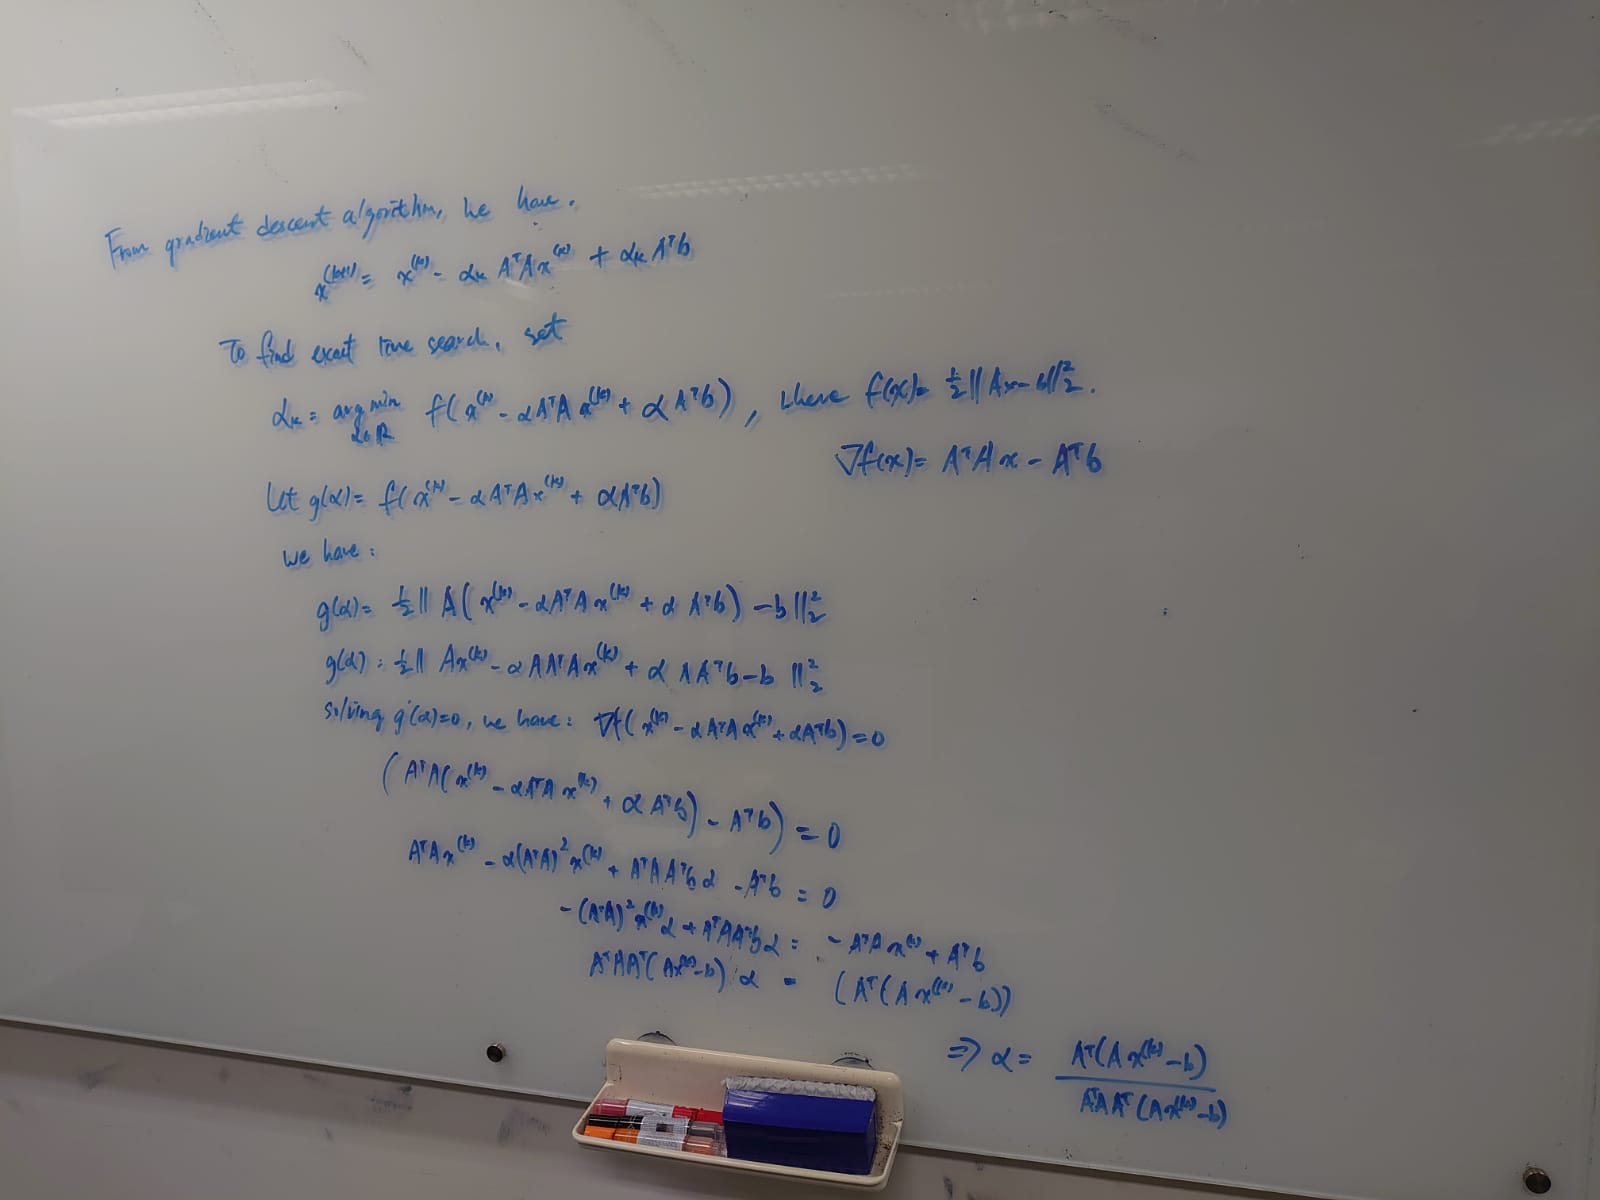 From gradient descent algorithm, we have.
x^(k+1) = x^(k) - α_k AᵀAx^(k) + α_k Aᵀb
To find exact line search, set
α_k = arg min_{α∈ℝ} f(x^(k) - αAᵀA x^(k) + αAᵀb), where f(x) = ½||Ax-b||₂².
∇f(x) = AᵀAx - Aᵀb
Let g(α) = f(x^(k) - αAᵀAx^(k) + αAᵀb)
we have:
g(α) = ½|| A(x^(k) - αAᵀAx^(k) + αAᵀb) - b||₂²
g(α) = ½|| Ax^(k) - αAAᵀAx^(k) + αAAᵀb - b ||₂²
solving g'(α)=0, we have: ∇f(x^(k) - αAᵀAx^(k) + αAᵀb) = 0
(AᵀA(x^(k) - αAᵀAx^(k) + αAᵀb) - Aᵀb) = 0
AᵀAx^(k) - α(AᵀA)²x^(k) + AᵀAAᵀbα - Aᵀb = 0
-(AᵀA)²x^(k)α + AᵀAAᵀbα = -AᵀAx^(k) + Aᵀb
AᵀAAᵀ(Ax^(k)-b) α = (Aᵀ(Ax^(k)-b))
⇒ α = Aᵀ(Ax^(k)-b) / AᵀAAᵀ(Ax^(k)-b)